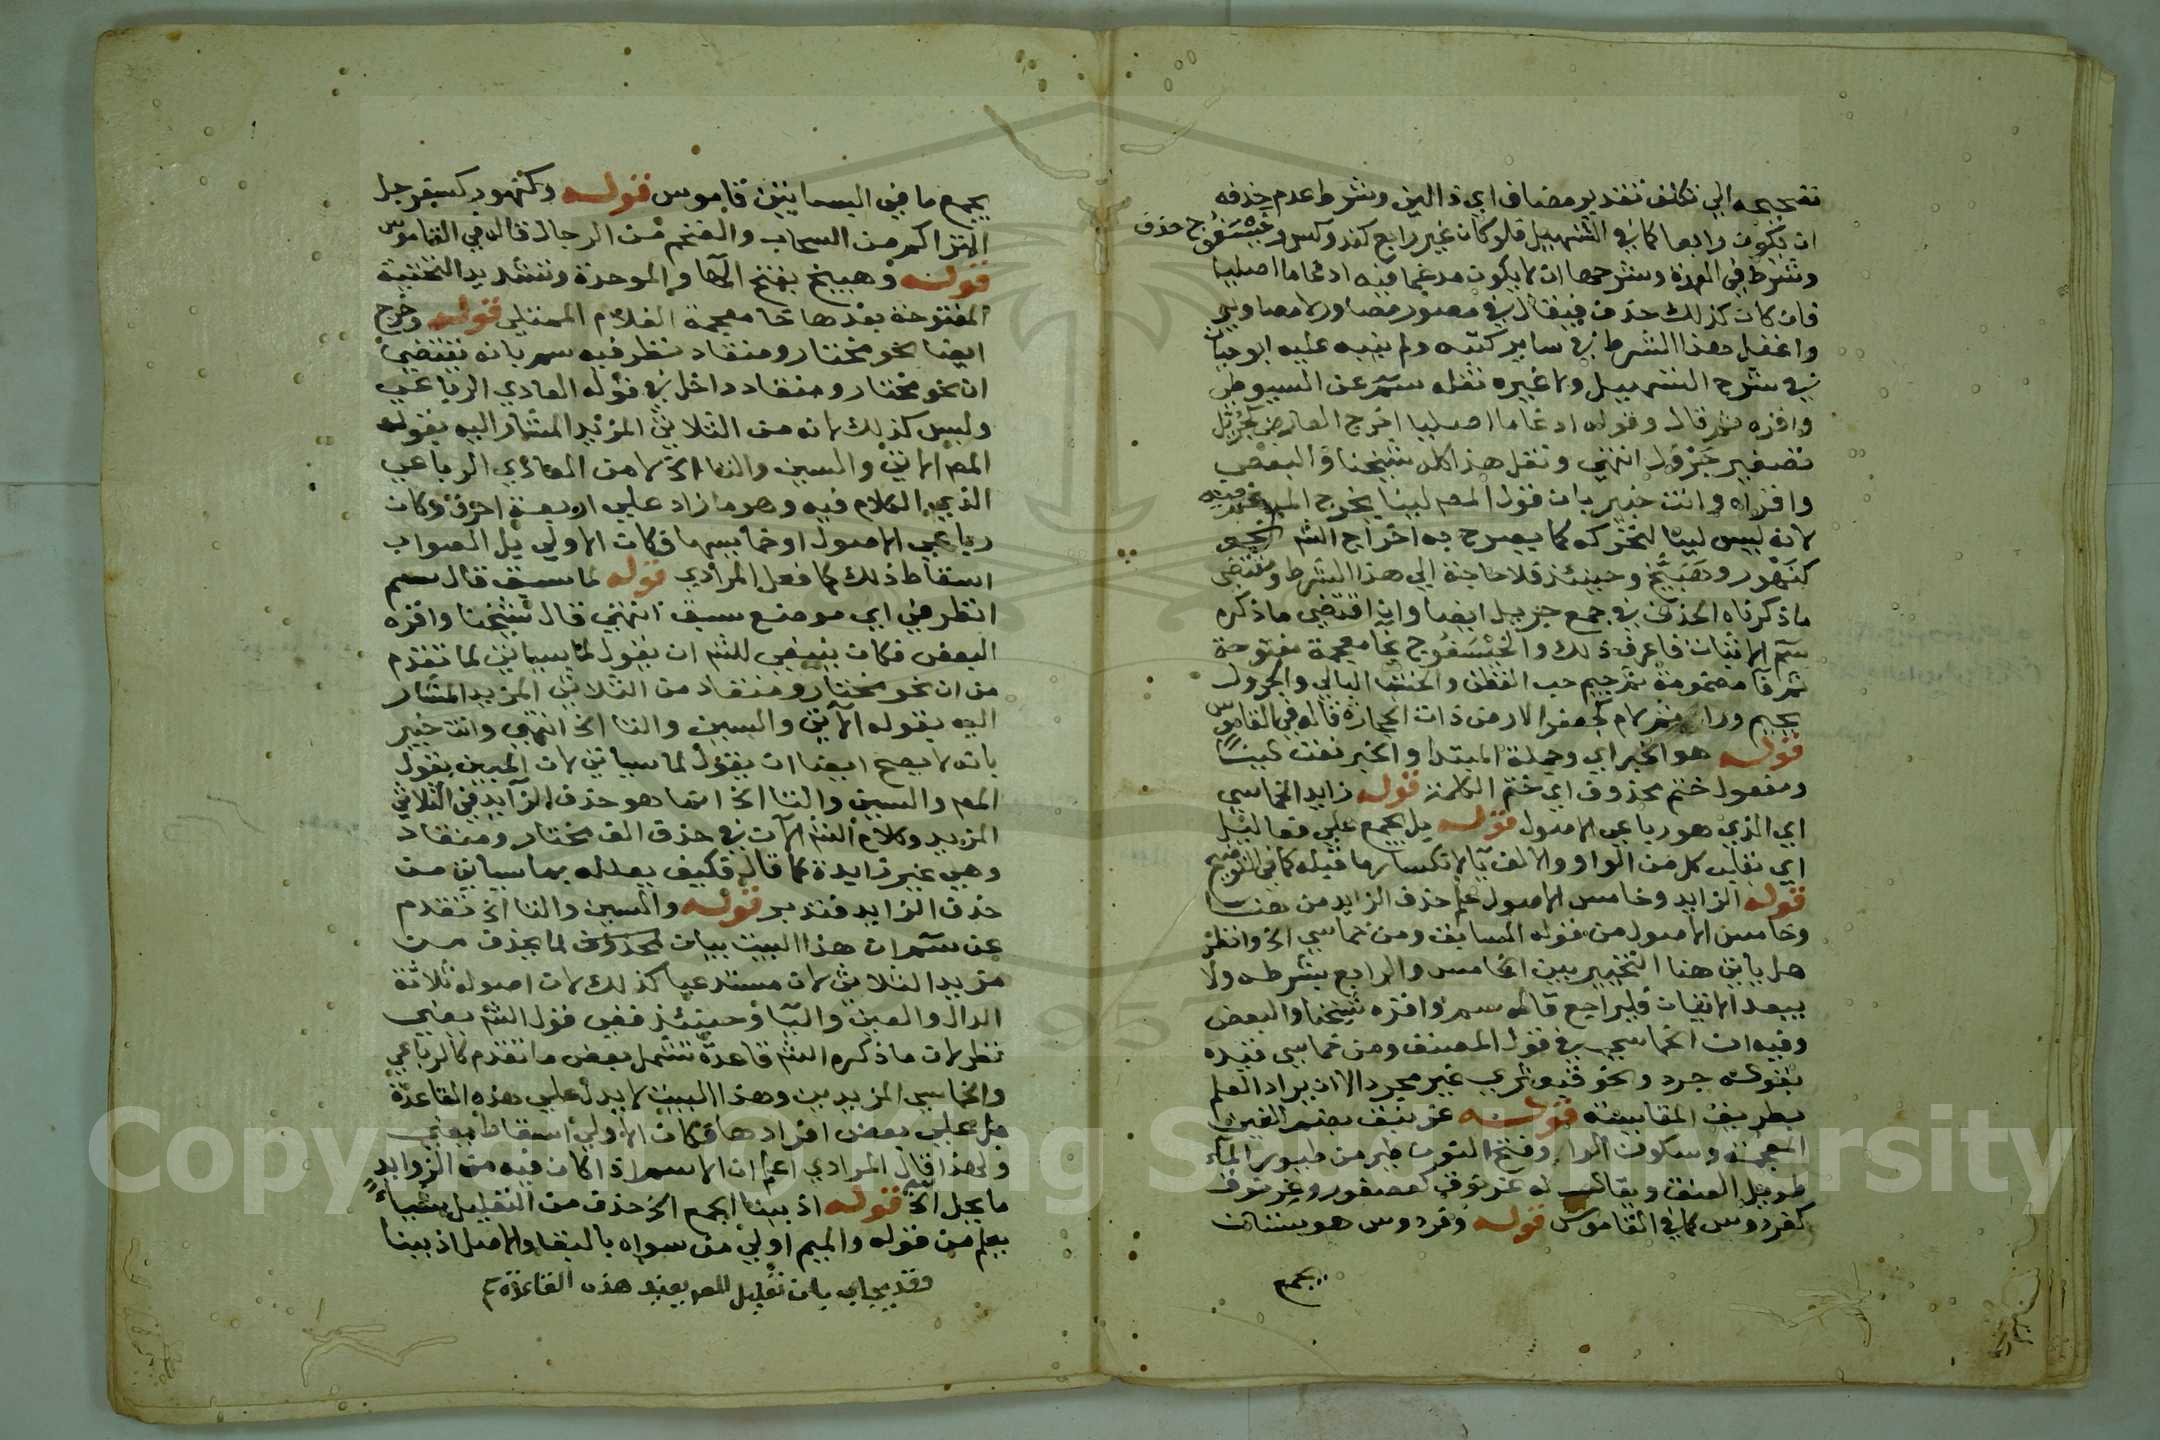 تصحيحه الي تكلف تقدير مضاف اي ذا لين وشرط عدم حذفه
ان يكون رابعا كما في التسهيل فلو كان غير رابع كفدوكس وخيسفوج حذف
وشرط في العمدة وشرحها ان لا يكون مدغما فيه ادغاما اصليا
فان كان كذلك حذف فيقال في مصور مصاور لا مصاوير
واغفل هذا الشرط في ساير كتبه ولم ينبه عليه ابو حيان
في شرح التسهيل ولا غيره نقله سم عن السيوطي
واقره ثم قال وقوله ادغاما اصليا اخرج العارض كجريل
تصغير جرول انتهي ونقل هذا كله شيخنا والبعض
واقراه وانت خبير بان قول المص لينا يخرج المدغم فيه
لانه ليس لينا لتحركه كما يصرح به اخراج الش نحو
كنهور وهبيخ وحينئذ فلا حاجة الي هذا الشرط ومقتضي
ما ذكرناه الحذف في جمع جريل ايضا وان اقتضي ما ذكره
سم الاثبات فاعرف ذلك والخيسفوج بخا معجمة مفتوحة
ثم فا مضمومة ثم جيم حب القطن والخشب البالي والجرول
بجيم ورا ثم لام كجعفر الارض ذات الحجارة قاله في القاموس
قوله هو الخبر اي وجملة المبتدا والخبر نعت لينا
ومفعول ختم محذوف اي ختم الكلمة قوله زايد الخماسي
اي الذي هو رباعي الاصول قوله بل يجمع علي فعاليل
اي بقلب كل من الواو والالف يآ لانكسار ما قبله كما في التوضيح
قوله الزايد وخامس الاصول علم حذف الزايد من هنا
وخامس الاصول من قوله السابق ومن خماسي الخ وانظر
هل ياتي هنا التخيير بين الخامس والرابع بشرطه ولا
يبعد الاتيان فليراجع قاله سم واقره شيخنا والبعض
وفيه ان الخماسي في قول المصنف ومن خماسي قيده
بقوله جرد ونحو قبعثري غير مجرد الا ان يراد العلم
بطريق المقايسة قوله غرنيق بضم الغين
المعجمة وسكون الرا وفتح النون طير من طيور المآء
طويل العنق ويقال له غرنوق كعصفور وغرنوق
كفردوس كما في القاموس قوله وفردوس هو بستان
يجمع
يجمع ما في البساتين قاموس قوله وكنهور كسفرجل
المتراكم من السحاب والضخم من الرجال قاله في القاموس
قوله وهبيخ بفتح الهآ والموحدة وتشديد التحتية
المفتوحة بعدها خا معجمة الغلام الممتلي قوله وخرج
ايضا نحو مختار ومنقاد نظر فيه سم بانه يقتضي
ان نحو مختار ومنقاد داخل في قوله العادي الرباعي
وليس كذلك لانه من الثلاثي المزيد المشار اليه بقوله
المص الاتي والسين والتا الخ لا من العادي الرباعي
الذي الكلام فيه وهو ما زاد علي اربعة احرف وكان
رباعي الاصول او خماسيها فكان الاولي بل الصواب
اسقاط ذلك كما فعل المرادي قوله لما سبق قال سم
انظر في اي موضع سبق انتهي قال شيخنا واقره
البعض فكان ينبغي للش ان يقول لما سياتي لما تقدم
من ان نحو مختار ومنقاد من الثلاثي المزيد المشار
اليه بقوله الآتي والسين والتا الخ انتهي وانت خبير
بانه لا يصح ايضا ان يقول لما سياتي لان المبين بقول
المص والسين والتا الخ انما هو حذف الزآيد في الثلاثي
المزيد وكلام الش الآن في حذف الف مختار ومنقاد
وهي غير زايدة كما قاله فكيف يعلله بما سياتي من
حذف الزايد فتدبر قوله والسين والتا الخ تقدم
عن سم ان هذا البيت بيان لما يحذف من
مزيد الثلاثي لان مستدعيا كذلك لان اصوله ثلاثة
الدال والعين واليآ وحينئذ ففي قول الش يعني
نظر لان ما ذكره الش قاعدة تشمل بعض ما تقدم كالرباعي
والخماسي المزيدين وهذا البيت لا يدل علي هذه القاعدة
بل علي بعض افرادها فكان الاولي اسقاط يعني
ولهذا قال المرادي اعلم ان الاسم اذا كان فيه من الزوايد
ما يخل الخ قوله اذ ببنا الجمع الخ حذف من التعليل شياءً
يعلم من قوله والميم اولي من سواه بالبقا والاصل اذ ببنا
وقد يجاب بان تعليل المص يفيد هذه القاعدة
Copyright © King Saud University